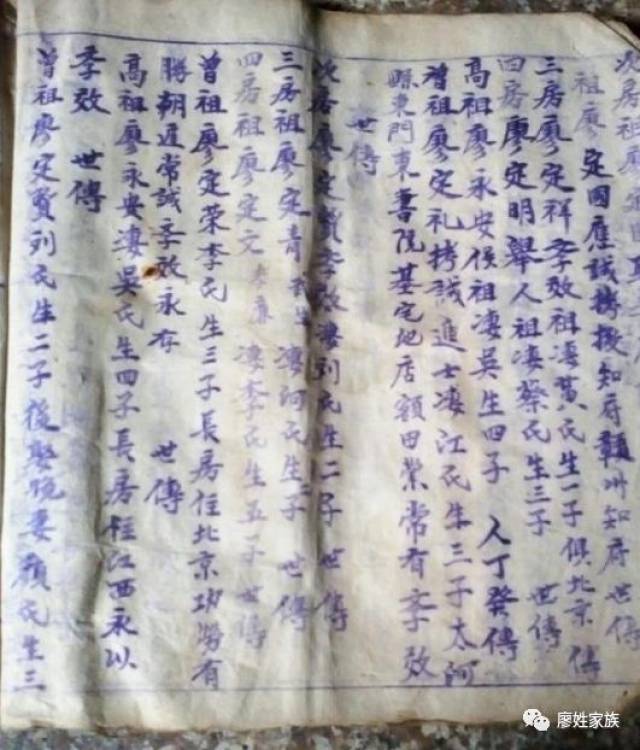 次房祖廖
祖廖定國應誠撈撥知府贛州知府世傳
三房廖定祥孝效祖凄黃氏生一子俱北京傳
四房廖定明舉人祖凄蔡氏生三子 世傳
高祖廖永安侯祖凄吳生四子 人丁發傳
曾祖廖定礼拷誠進士凄江氏生三子太河
縣東門東書院基宅地店額田業常有孝效
世傳
次房廖定賢孝效凄刘氏生二子世傳
三房祖廖定青 凄河氏生二子 世傳
四房祖廖定文 孝廉 凄李氏生五子世傳
曾祖廖定荣李氏生三子長房住北京功勞有
勝朝廷常誠孝效永存 世傳
高祖廖永安凄吳氏生四子長房住江西永以
季效 世傳
曾祖廖定賢刘氏生二子後娶晚妻顏氏生三
廖姓家族